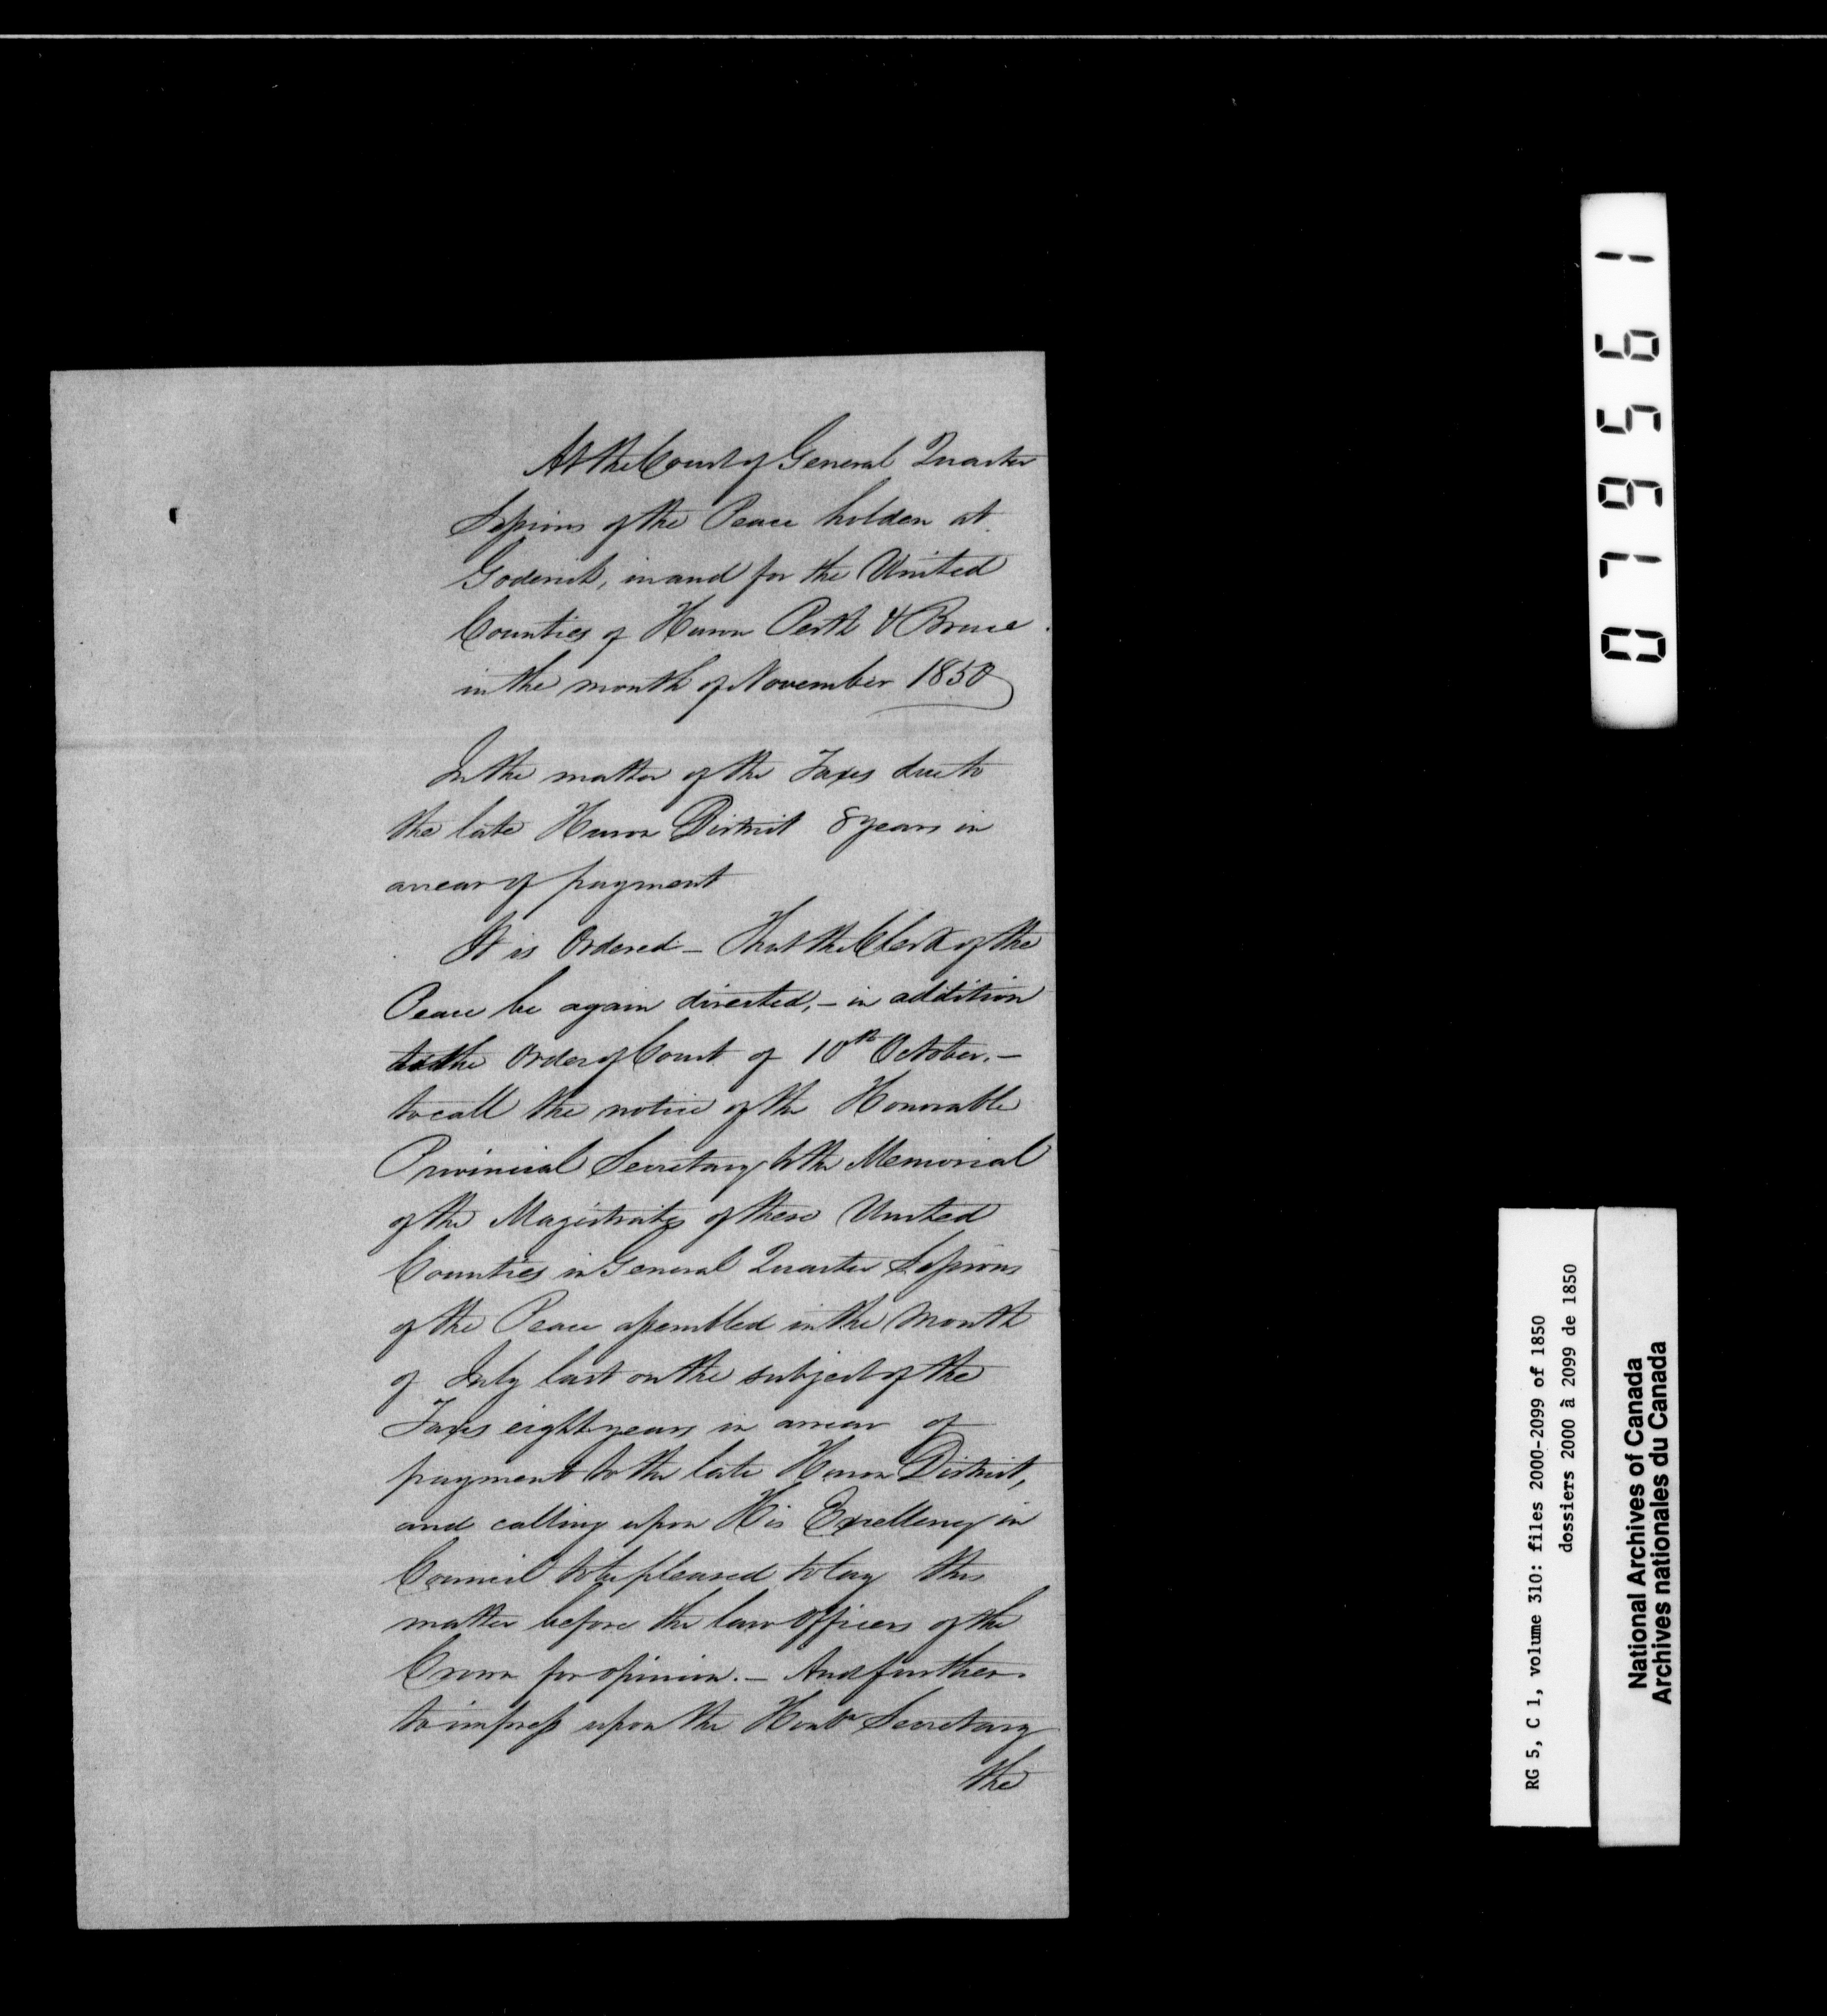 At the Court of General Quarter
Sessions of the Peace holden at
Goderich, in and for the United
Counties of Huron Perth & Bruce
in the month of November 1850
In the matter of the Taxes due to
the late Huron District 8 years in
arrear of payment
It is Ordered - That the Clerk of the
Peace be again directed, - in addition
to the Order of Court of 10th October. -
to call the notice of the Honorable
Provincial Secretary to the Memorial
of the Magistrates of these United
Counties in General Quarter Sessions
of the Peace assembled in the Month
of July last on the subject of the
Taxes eight years in arrear of
payment to the late Huron District,
and calling upon His Excellency in
Council to be pleased to lay this
matter before the law Officers of the
Crown for opinion. - And further.
to impress upon the Honble Secretary
the
079561
RG 5, C 1, volume 310: files 2000-2099 of 1850
dossiers 2000 à 2099 de 1850
National Archives of Canada
Archives nationales du Canada